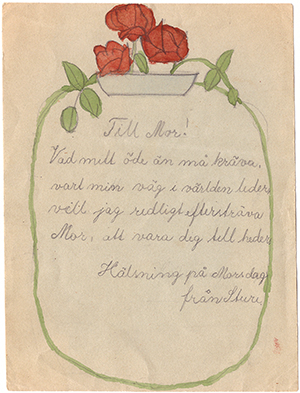 Till Mor!
Vad mitt öde än må kräva,
vart min väg i världen leder
vill jag redligt eftersträva
Mor, att vara dig till heder
Hälsning på Morsdag
från Sture.